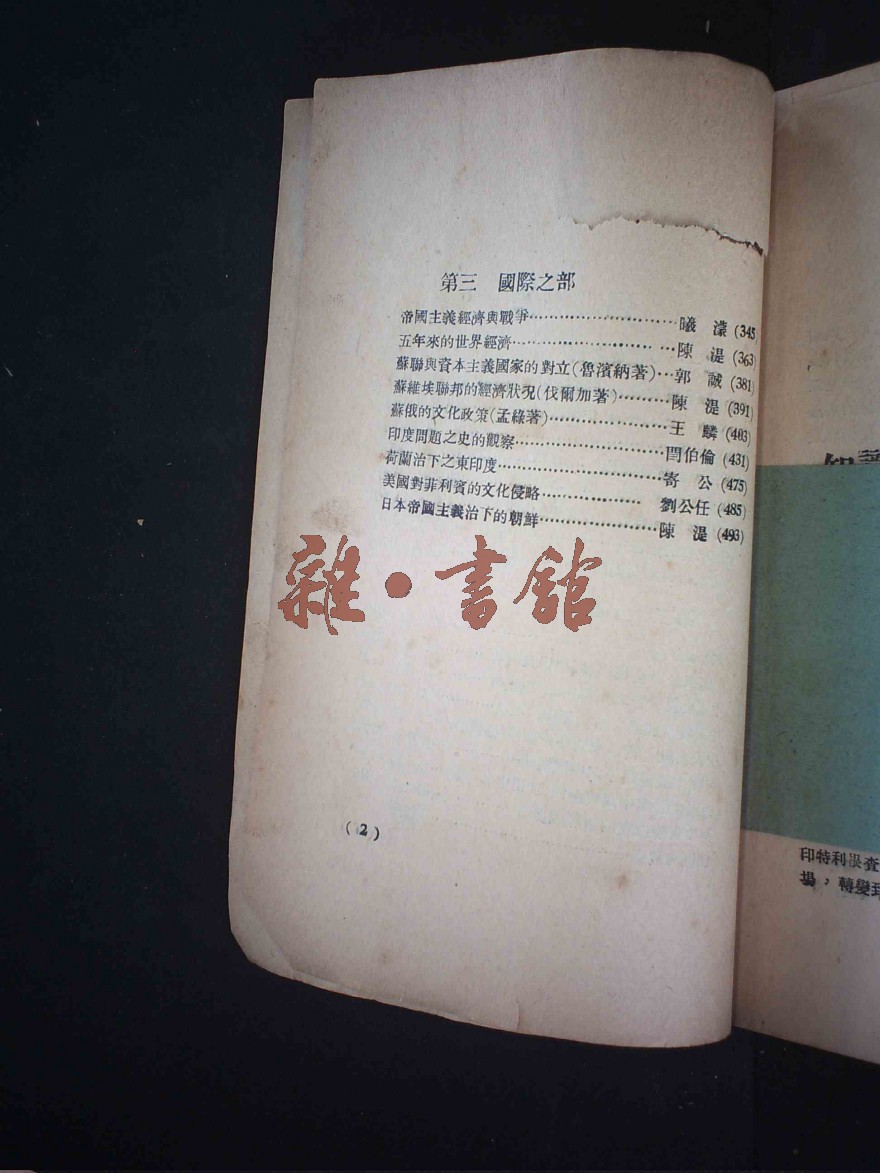 第三　國際之部
帝國主義經濟與戰爭……………………曦　濛 (345
五年來的世界經濟……………………陳　湜 (363)
蘇聯與資本主義國家的對立(魯濱納著)…郭　誠 (381)
蘇維埃聯邦的經濟狀況(伐爾加著)………陳　湜 (391)
蘇俄的文化政策(孟綠著)………………王　麟 (403)
印度問題之史的觀察……………………閆伯倫 (431)
荷蘭治下之東印度………………………寄　公 (475)
美國對菲利賓的文化侵略……………劉公任 (485)
日本帝國主義治下的朝鮮………………陳　湜 (493)
雜·書館
(2)
印特利
場，轉變